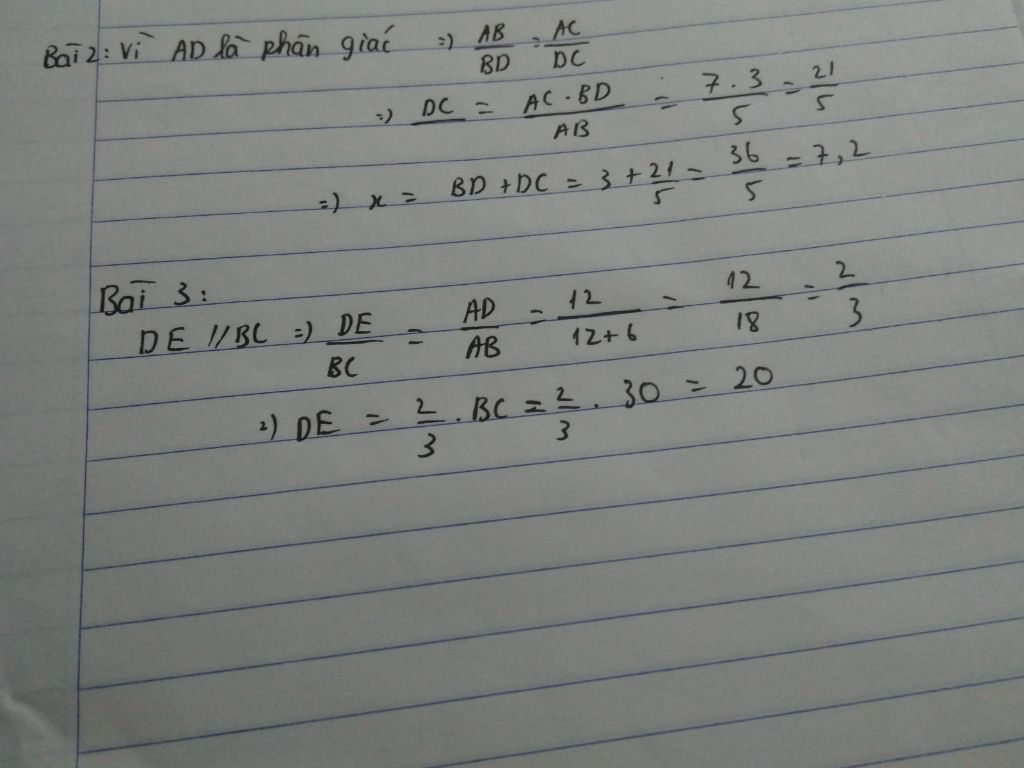 Bài 2: Vì AD là phân giác => AB/BD = AC/DC
=> DC = AC.BD/AB = 7.3/5 = 21/5
=> x = BD + DC = 3 + 21/5 = 36/5 = 7,2
Bài 3:
DE // BC => DE/BC = AD/AB = 12/12+6 = 12/18 = 2/3
=> DE = 2/3 . BC = 2/3 . 30 = 20